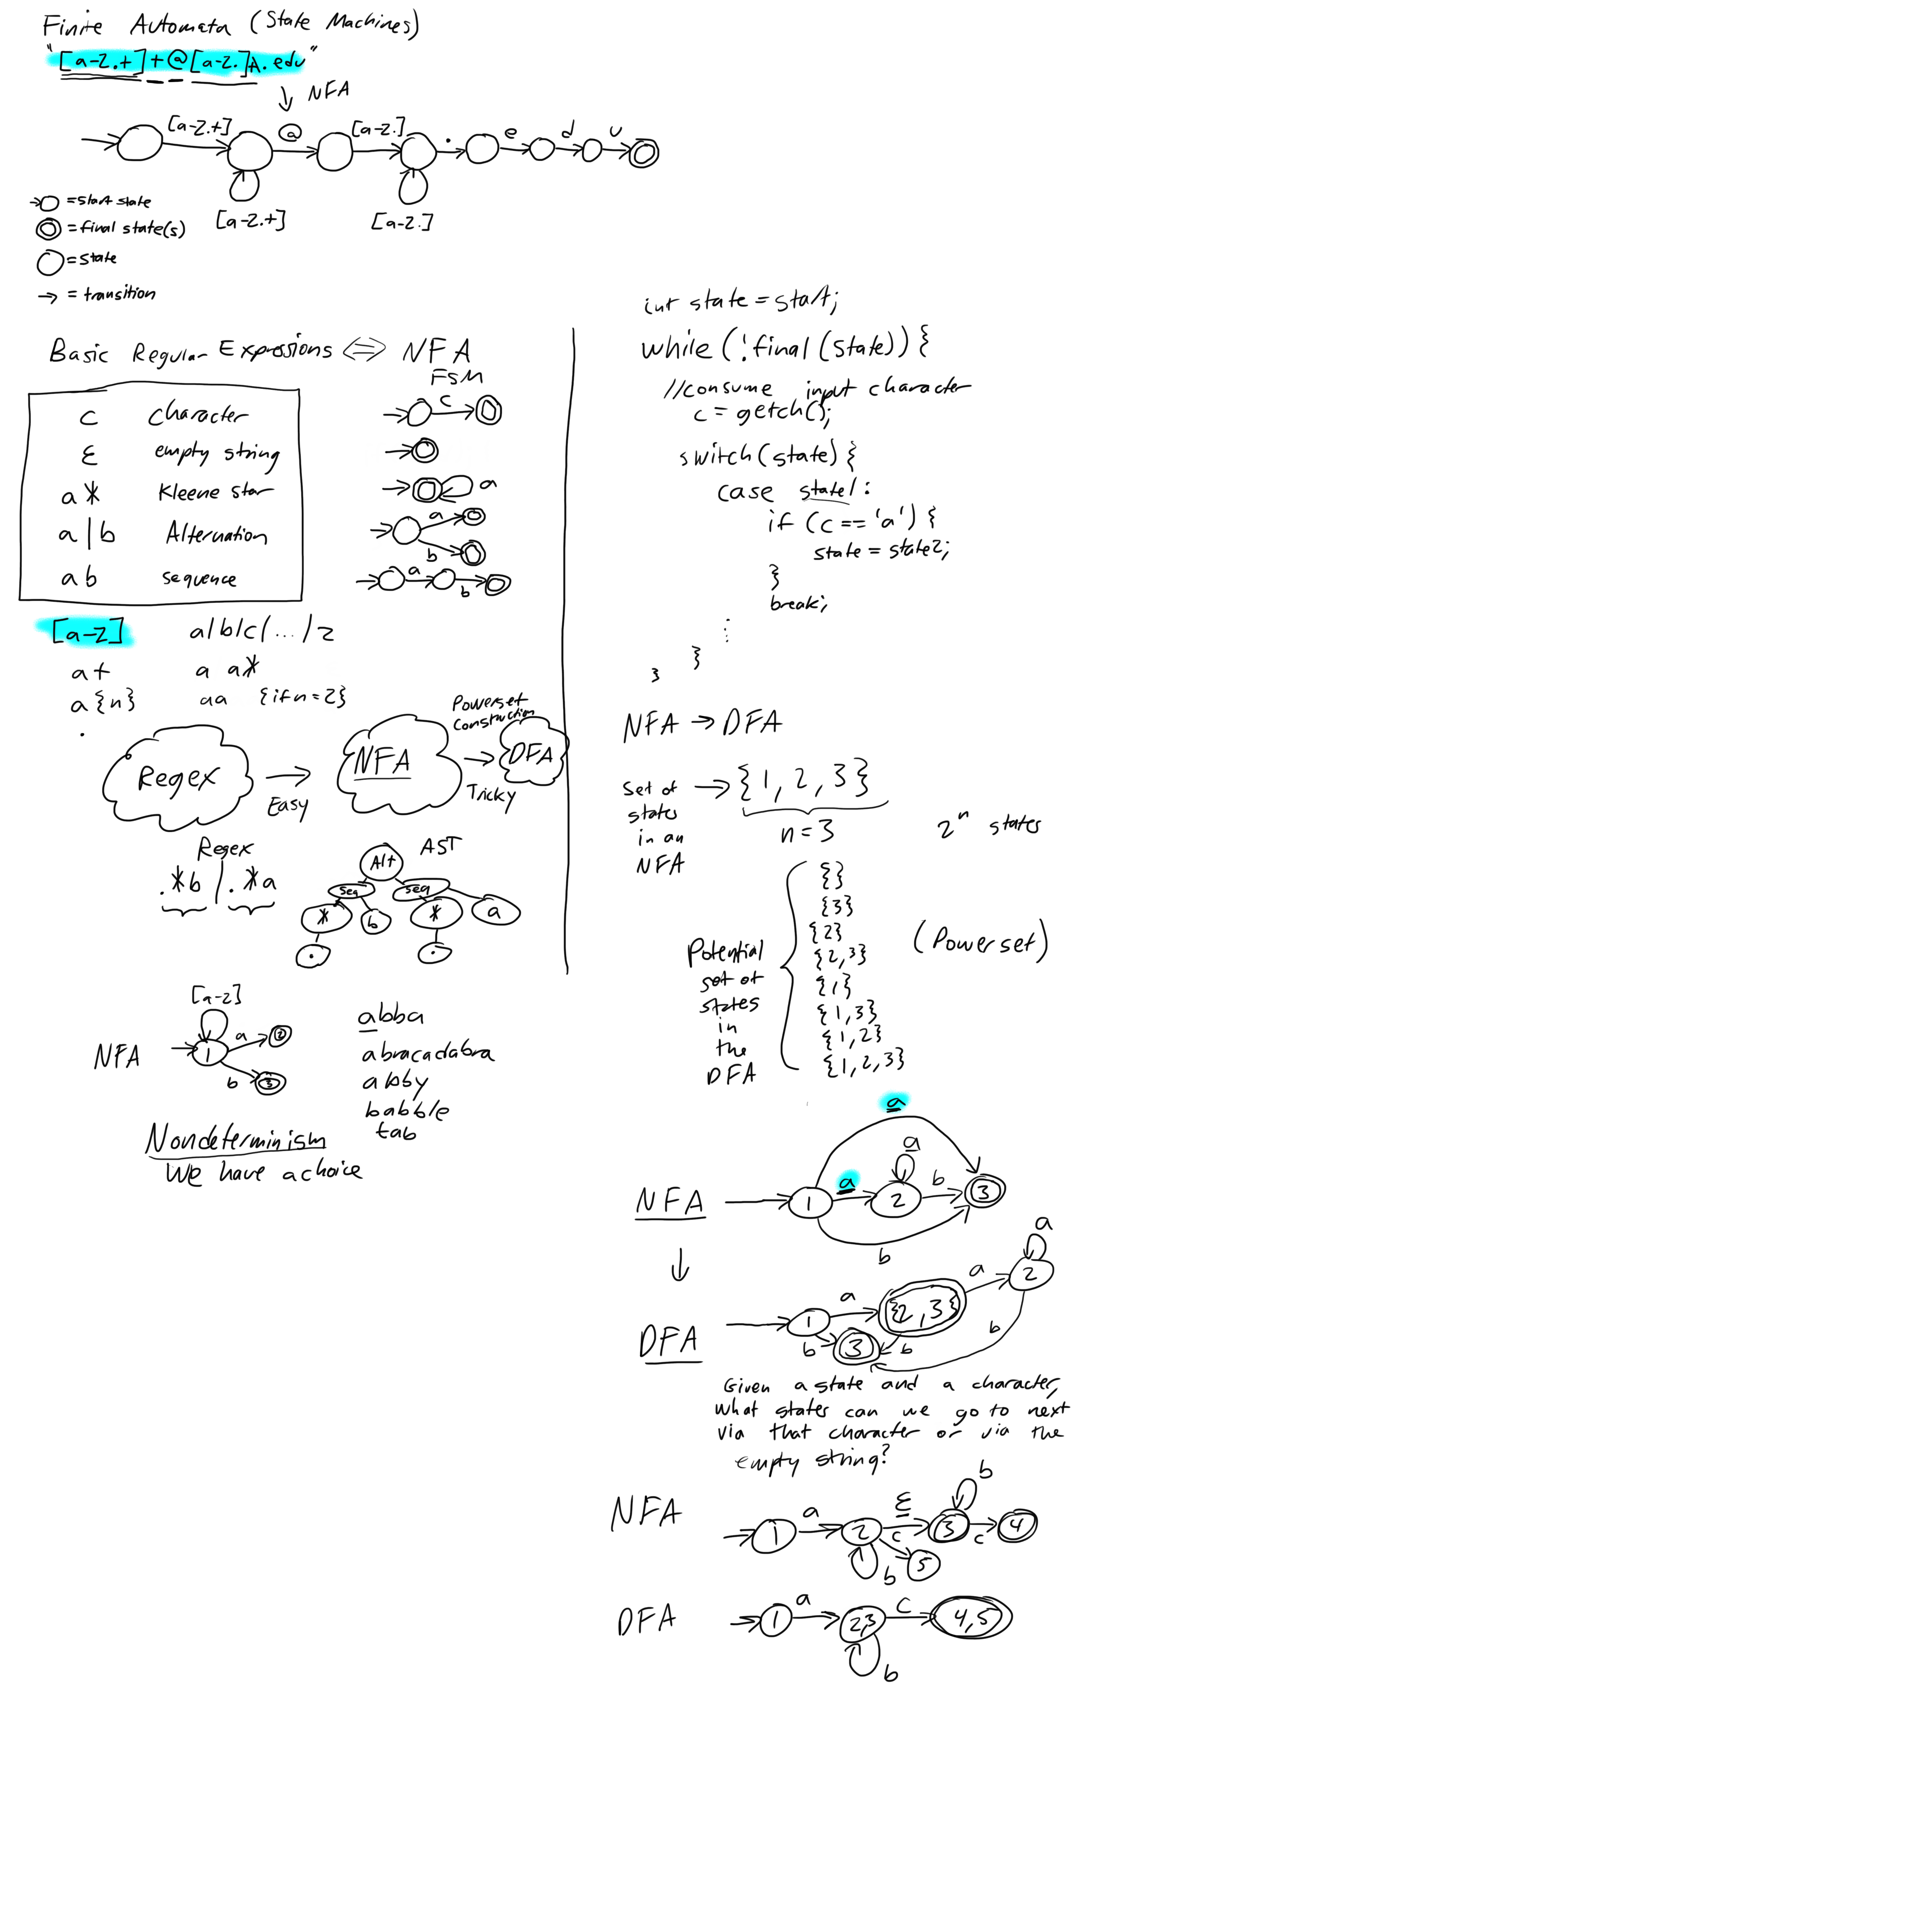 Finite Automata (State Machines)
"[a-z.+]+@[a-z.]+.edu"
NFA
[a-z.+] @ [a-z.] . e d u
[a-z.+] [a-z.]
= start state
= final state(s)
= state
→ = transition
Basic Regular Expressions ⇔ NFA
FSM
c character c
ε empty string
a* Kleene star a
a|b Alternation a b
ab sequence a b
[a-z] a|b|c|...|z
a+ a a*
a{n} aa {if n=2}
.
Regex → Easy NFA → Powerset Construction Tricky DFA
Regex
.*b | .*a
AST
Alt
seq seq
* b * a
. .
[a-z]
NFA 1 a 2 b 3
abba
abracadabra
abby
babble
tab
Nondeterminism
We have a choice
int state = start;
while (!final(state)) {
//consume input character
c = getch();
switch(state) {
case state1:
if (c == 'a') {
state = state2;
}
break;
⋮
}
}
NFA → DFA
Set of states in an NFA → {1, 2, 3}
n = 3 2ⁿ states
Potential set of states in the DFA
{}
{3}
{2}
{2,3}
{1}
{1,3}
{1,2}
{1,2,3}
(Powerset)
a
a
NFA 1 a 2 b 3
b
a
DFA 1 a {2,3} a 2
b 3 b b
Given a state and a character,
what states can we go to next
via that character or via the
empty string?
b
NFA 1 a 2 ε 3 c 4
c b 5
DFA 1 a 2,3 c 4,5
b